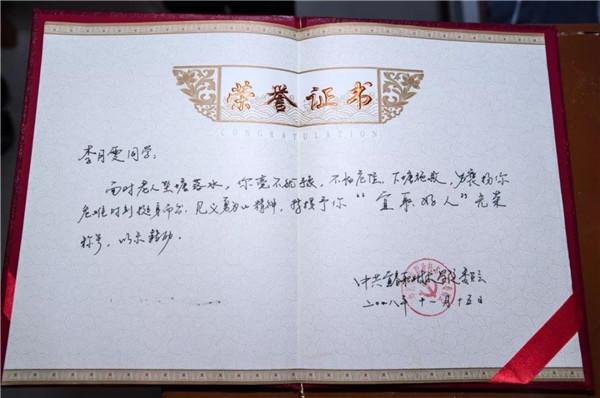 荣誉证书
CONGRATULATION
李月雯同学：
面对老人坠塘落水，你毫不犹豫，不怕危险，下塘施救，为褒扬你
危难时刻挺身而出，见义勇为的精神，特授予你“宜职好人”光荣
称号，以示鼓励。
中共宜春职业技术学院委员会
二〇一八年十一月十五日